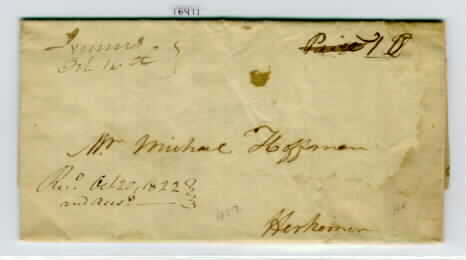 Oct 16th
Paid 18
Mr Michael Hoffman
Rec.d Oct 20, 1822
and ans.d
Herkimer